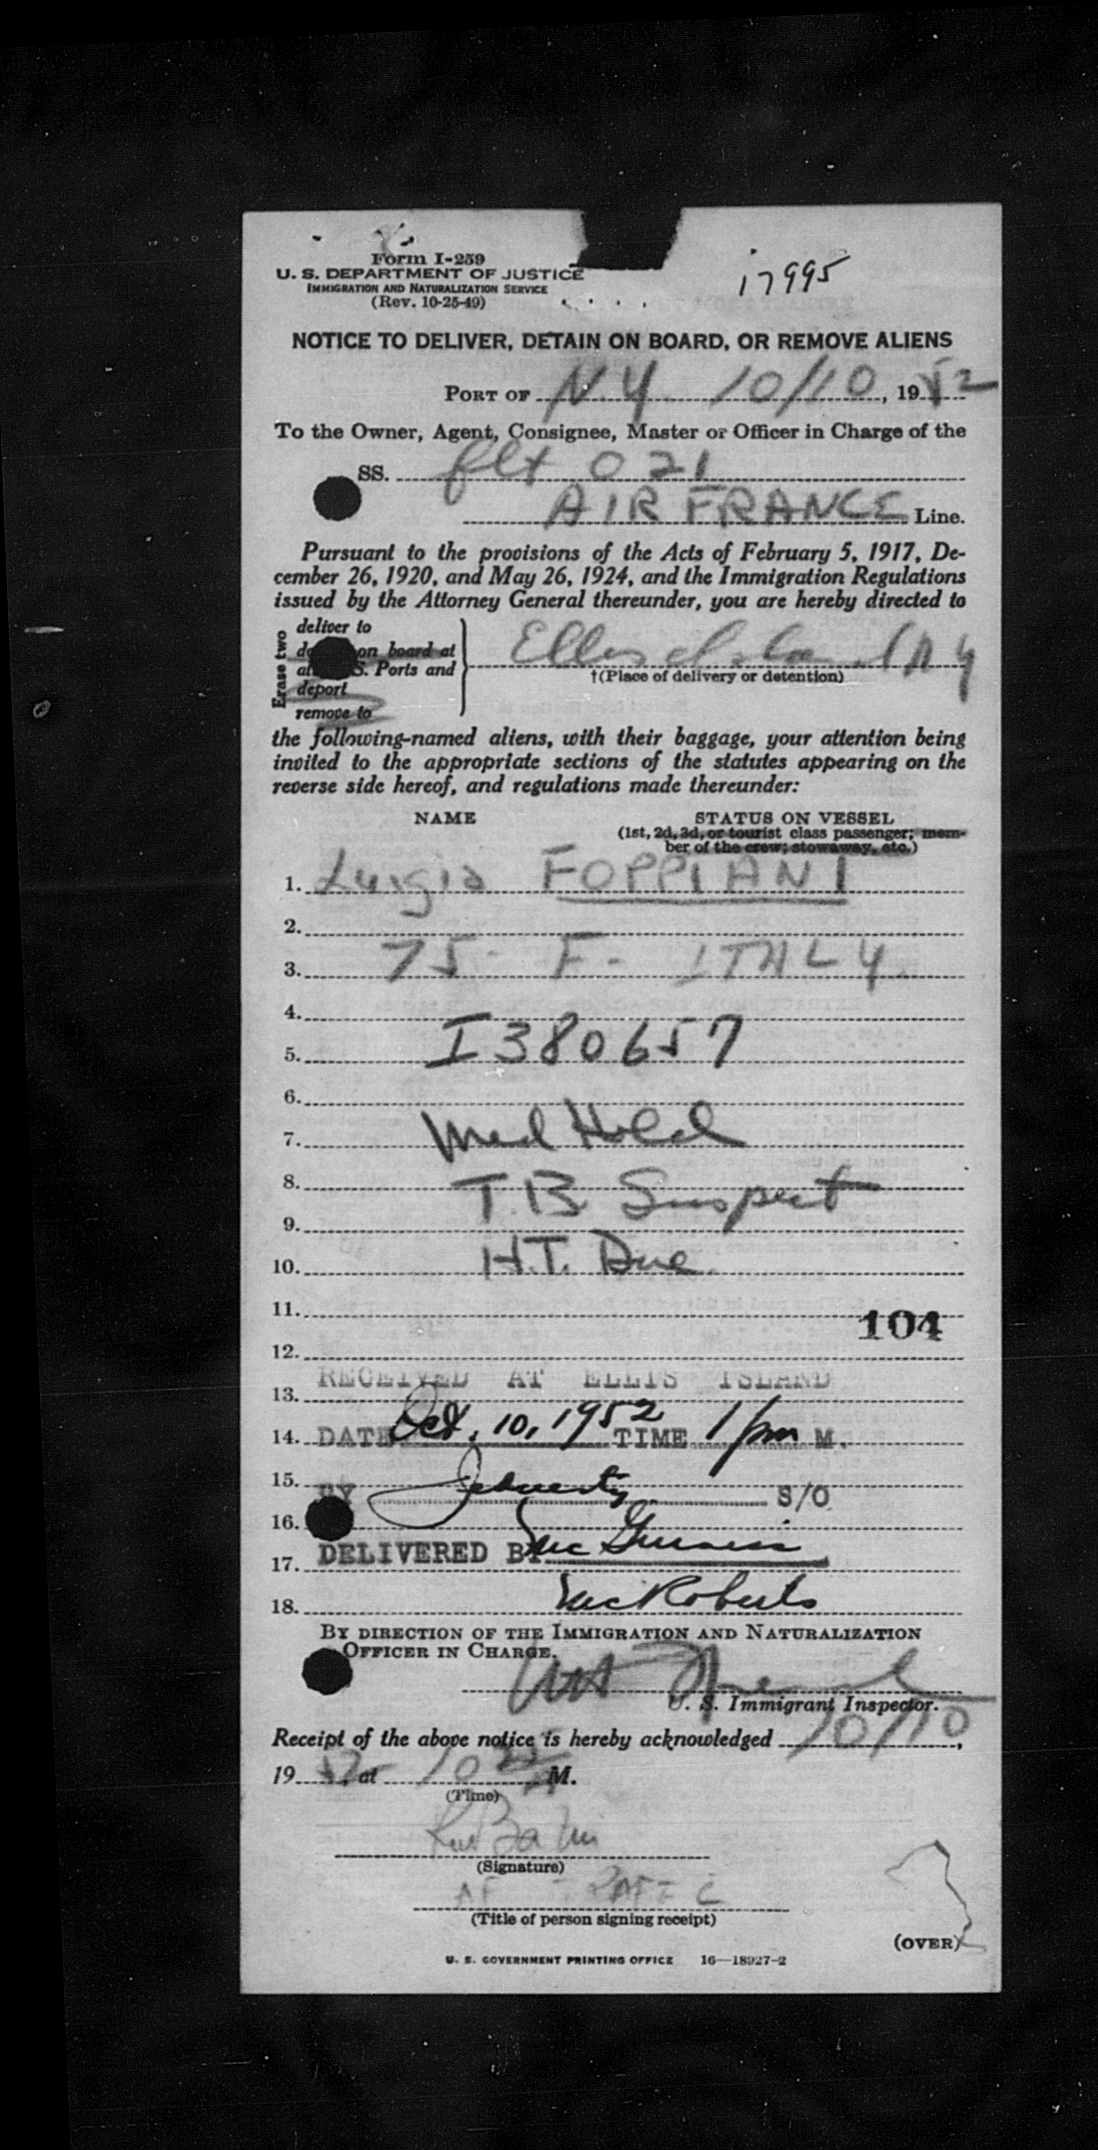 Form I-259
U. S. DEPARTMENT OF JUSTICE
IMMIGRATION AND NATURALIZATION SERVICE
(Rev. 10-25-49)
17995
NOTICE TO DELIVER, DETAIN ON BOARD, OR REMOVE ALIENS
PORT OF N.Y. 10/10, 1952
To the Owner, Agent, Consignee, Master or Officer in Charge of the
SS. flt 021
AIR FRANCE Line.
Pursuant to the provisions of the Acts of February 5, 1917, De-
cember 26, 1920, and May 26, 1924, and the Immigration Regulations
issued by the Attorney General thereunder, you are hereby directed to
Erase two
deliver to
on board at
S. Ports and
deport
remove to
Ellis Island N Y
†(Place of delivery or detention)
the following-named aliens, with their baggage, your attention being
invited to the appropriate sections of the statutes appearing on the
reverse side hereof, and regulations made thereunder:
NAME STATUS ON VESSEL
(1st, 2d, 3d, or tourist class passenger; mem-
ber of the crew; stowaway, etc.)
1. Luigia FOPPIANI
2.
3. 75- F- ITALY.
4.
5. I380657
6.
7. Med Hold
8. T.B. Suspect
9.
10. H.T. Due.
11.
104
12.
RECEIVED AT ELLIS ISLAND
13.
14. DATE Oct. 10, 1952 TIME 1 pm M.
15.
BY S/O
16.
DELIVERED BY
17.
18. McRoberts
BY DIRECTION OF THE IMMIGRATION AND NATURALIZATION
OFFICER IN CHARGE.
U. S. Immigrant Inspector.
Receipt of the above notice is hereby acknowledged 10/10,
19 52, at 10 M.
(Time)
(Signature)
(Title of person signing receipt)
(OVER)
U. S. GOVERNMENT PRINTING OFFICE 16—18927-2